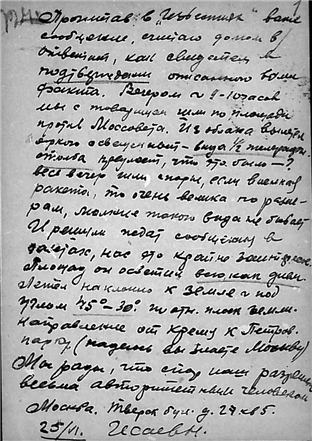 Прочитав в "Известиях" ваше
сообщение, считаю долгом
ответить, как свидетель и
подтверждаю описанного вами
факта. Вечером ч 9-10 часов
мы с товарищем шли по площади
против Моссовета. Из облака
ярко освещ
что это было-?
весь вечер шли споры, если
ракета, то очень велика по разме-
рам, молние такого вида не бывает
И решили ждать сообщений в
газетах, нас это крайне
Площадь он осветил всю, как днем
Летел наклонно к земле под
углом 45°-30°
направление от Кремля к Петров.
парку (надеюсь вы знаете Москву)
Мы рады, что спор наш разрешен
весьма авторитетным человеком
Москва. Тверск бул. д. 27 кв 5.
25/II. Исаев